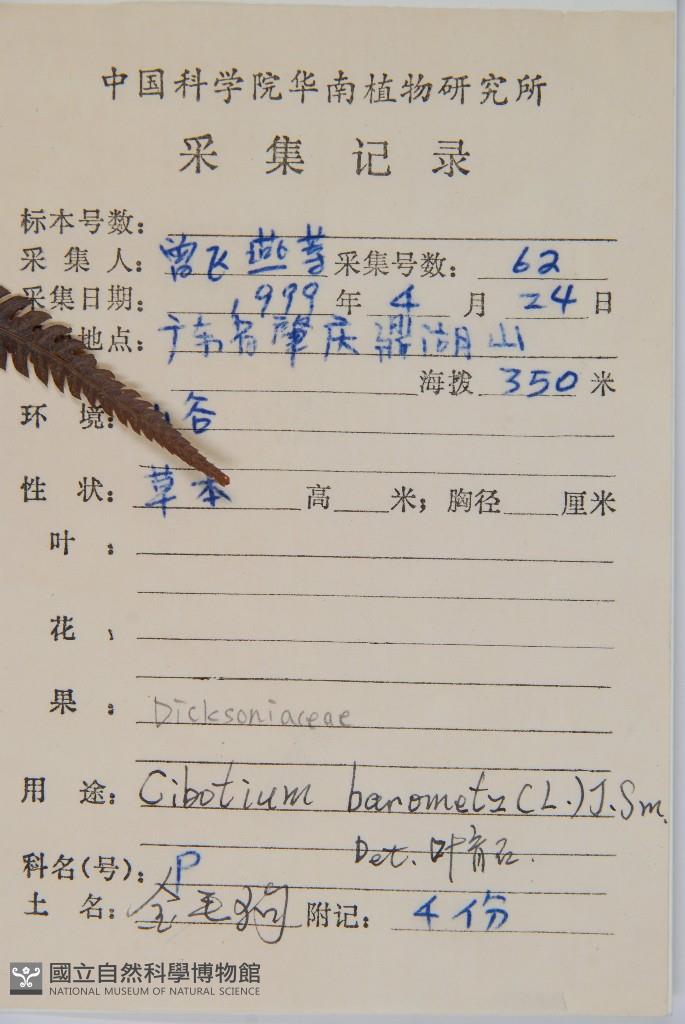 中国科学院华南植物研究所
采集记录
标本号数:
采集人: 曾飞燕等 采集号数: 62
采集日期: 1999 年 4 月 24 日
地点: 广东省肇庆鼎湖山
海拨 350 米
环境: 谷
性状: 草本 高 米; 胸径 厘米
叶:
花:
果: Dicksoniaceae
用途: Cibotium barometz (L.) J. Sm.
Det. 叶育石.
科名(号): P
土名: 金毛狗 附记: 4份
國立自然科學博物館
NATIONAL MUSEUM OF NATURAL SCIENCE